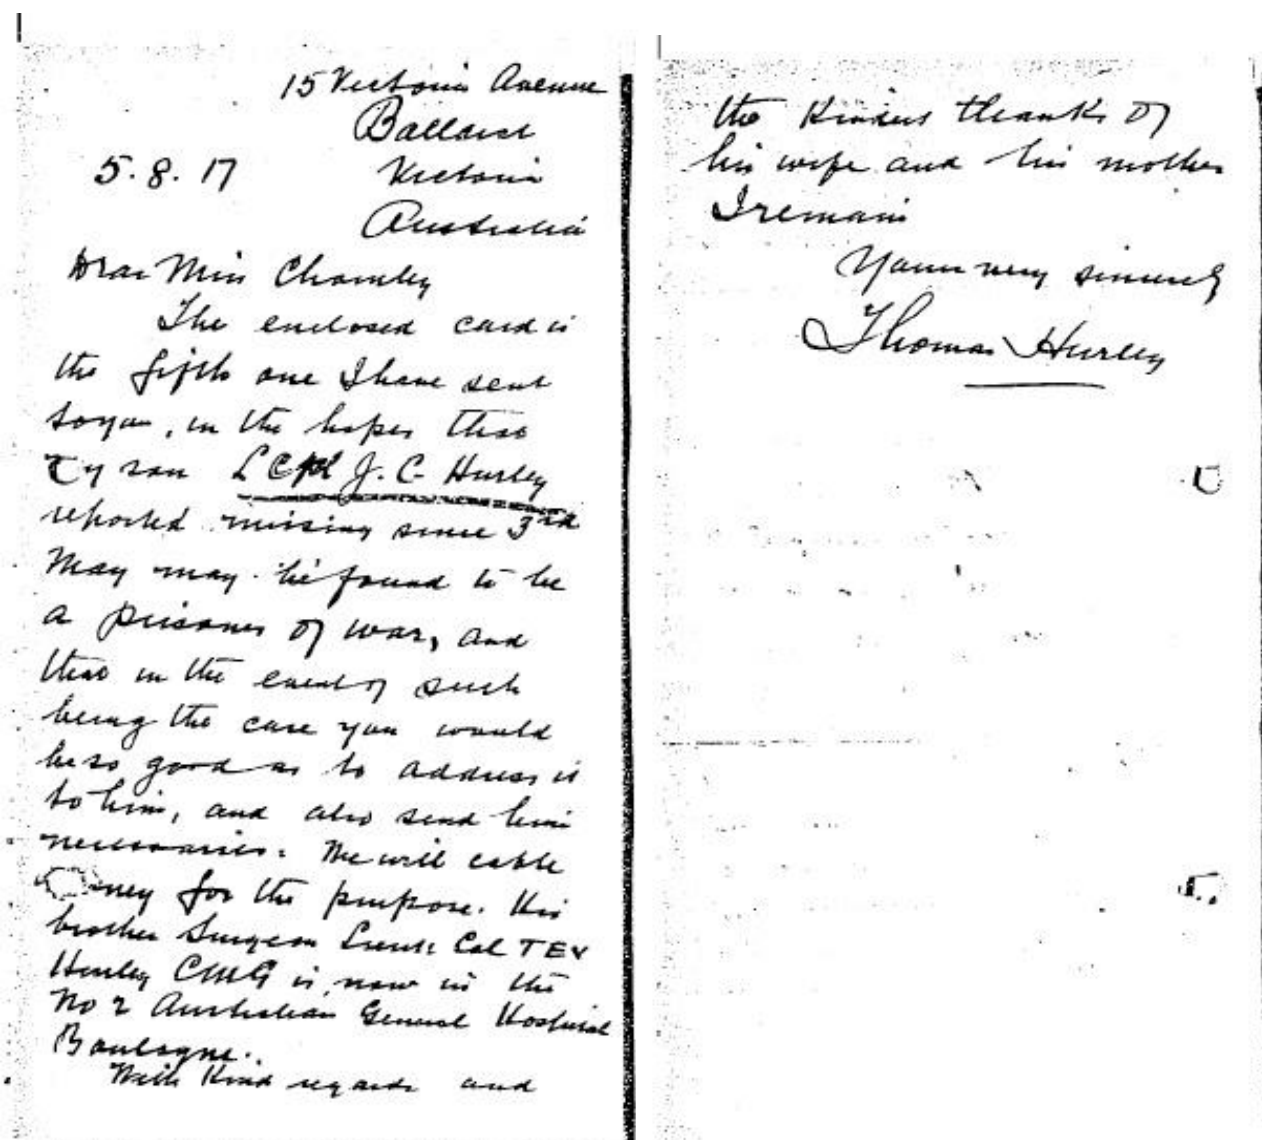 15 Victoria Avenue
Ballarat
5.8.17 Victoria
Australia
Dear Miss Chomley
The enclosed card is
the fifth one I have sent
to you, in the hopes that
my son L Cpl J. C. Hurley
reported missing since 3rd
May may be found to be
a prisoner of war, and
that in the event of such
being the case you would
be so good as to address it
to him, and also send him
necessaries. We will cable
money for the purpose. His
brother Surgeon Lieut: Col TEV
Hurley CMG is now in the
No 2 Australian General Hospital
Boulogne.
With Kind regards and
the Kindest thanks of
his wife and his mother
I remain
Yours very sincerely
Thomas Hurley